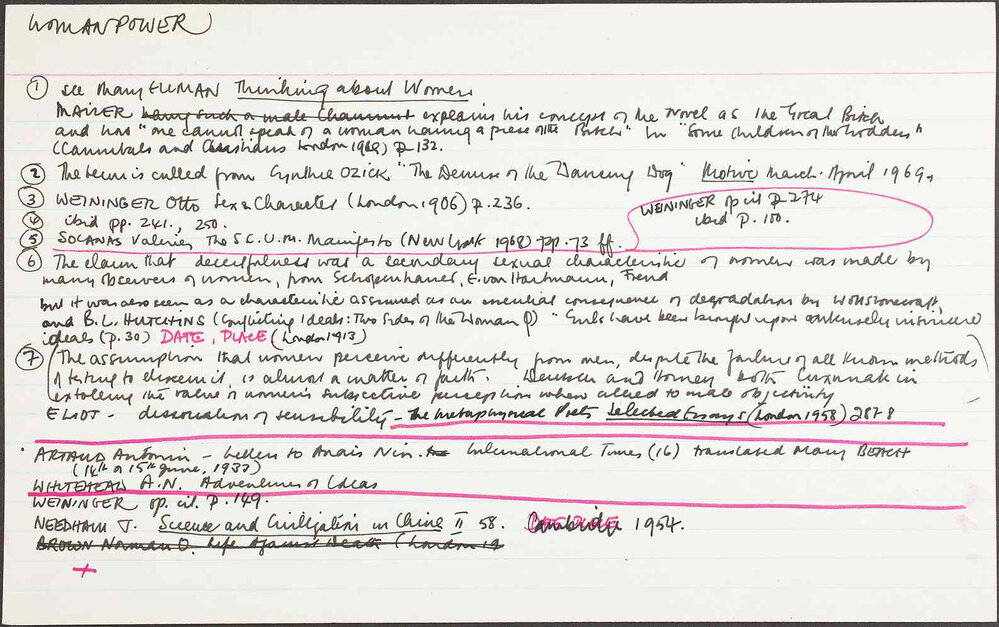 WOMANPOWER
① see Mary ELLMAN Thinking about Women
MAILER being such a male Chauvinist explains his concept of the Novel as the Great Bitch
and has "one cannot speak of a woman having a piece of the Bitch" in "Some Children of the Goddess"
(Cannibals and Christians London 1969) p 132.
② The term is culled from Cynthia OZICK "The Demise of the Dancing Dog" Motive March-April 1969,
③ WEININGER Otto Sex & Character (London 1906) p. 236.
④ ibid pp. 241., 250.
⑤ SOLANAS Valerie, The S.C.U.M. Manifesto (New York 1968) pp. 73 ff.
WEININGER op cit p 274
ibid p. 100.
⑥ The claim that deceitfulness was a secondary sexual characteristic of women was made by
many observers of women, from Schopenhauer, E. von Hartmann, Freud
but it was also seen as a characteristic assumed as an essential consequence of degradation by Wollstonecraft,
and B.L. HUTCHINS (Conflicting Ideals: Two Sides of the Woman Q) "Girls have been brought up on intensely insincere
ideals (p. 30) DATE, PLACE (London 1913)
⑦ (The assumption that women perceive differently from men, despite the failure of all known methods
of testing to discern it, is almost a matter of faith. Deutsch and Horney both in
extolling the value of women's subjective perception when allied to male objectivity
ELIOT - dissociation of sensibility - The Metaphysical Poets Selected Essays (London 1958) 287-8
ARTAUD Antonin - Letters to Anais Nin. International Times (16) translated Mary BEACH
(14th or 15th June, 1933)
WHITEHEAD A.N. Adventures of Ideas
WEININGER op. cit. p. 149.
NEEDHAM J. Science and Civilization in China II 58. Cambridge 1954.
BROWN Norman O. Life Against Death (London 19
+